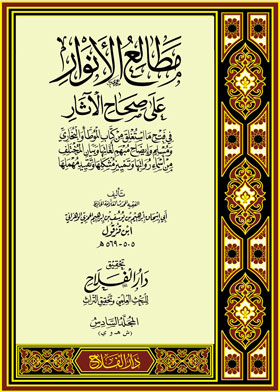 مطالع الأنوار
على صحاح الآثار
في فتح ما استغلق من كتاب الموطأ والبخاري
ومسلم وإيضاح مبهم لغاتها وبيان المختلف
من أسماء رواتها وتمييز مشكلها وتقييد مهملها
تأليف
أبي إسحاق إبراهيم بن يوسف بن إبراهيم الوهراني
ابن قرقول
٥٠٥ - ٥٦٩ هـ
تحقيق
دار الفلاح
للبحث العلمي وتحقيق التراث
المجلد السادس
(ش - هـ - و - ي)
دار الفلاح